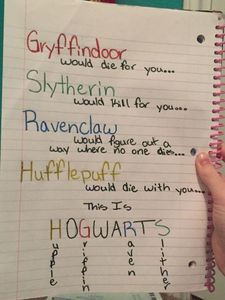 Gryffindoor
would die for you...
Slytherin
would kill for you...
Ravenclaw
would figure out a
way where no one dies...
Hufflepuff
would die with you...
This Is
HOGWARTS
u r a l